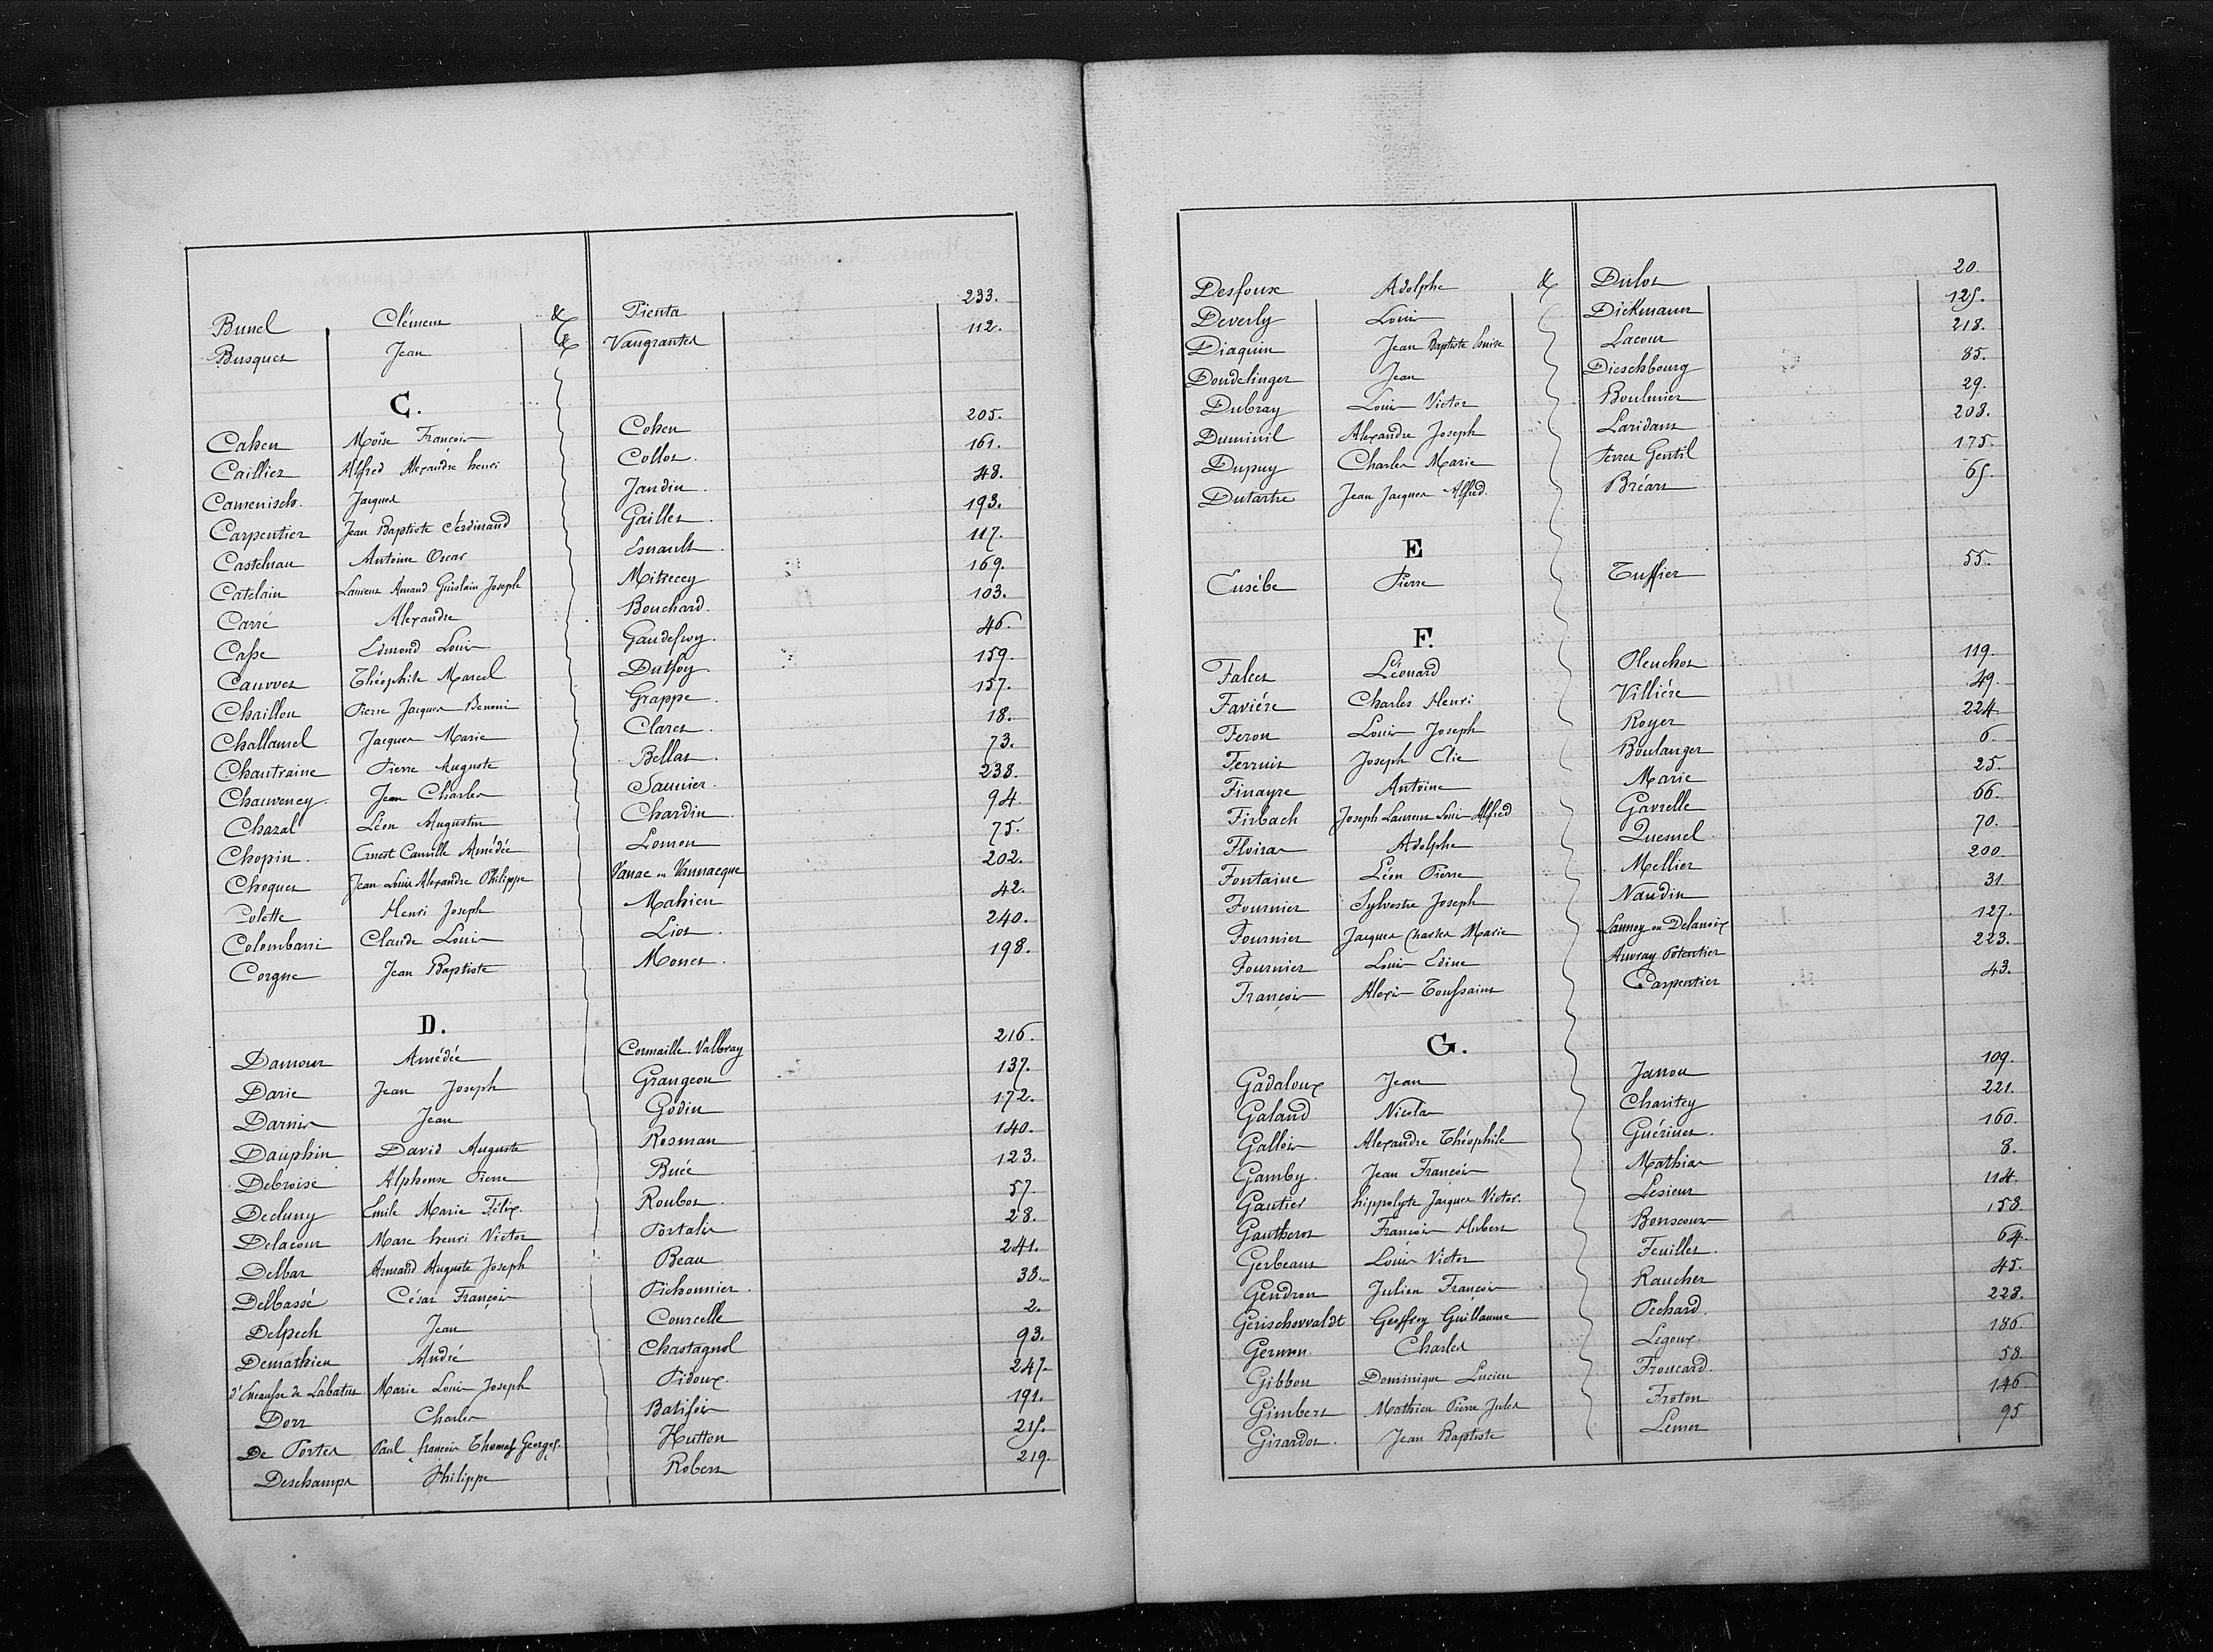 Bunel Clément & Pienta 233.
Busquet Jean & Vaugrantes 112.
C.
Cahen Moïse François Cohen 205.
Caillier Alfred Alexandre henri Collot. 161.
Camenisch. Jacques Jandin. 48.
Carpentier Jean Baptiste Ferdinand Gaillet. 193.
Castelnau Antoine Oscar Esnault. 117.
Catelain Laurent Amand Guislain Joseph Mitrecey 169.
Carré Alexandre Bouchard. 103.
Casse Edmond Louis Gaudefroy. 46.
Cauvvet Théophile Marcel Dutfoy 159.
Chaillou Pierre Jacques Benoni Grappe. 157.
Challamel Jacques Marie Claret. 18.
Chantraine Pierre Auguste Bellat. 73.
Chauvency. Jean Charles Saunier. 238.
Chazal Léon Augustin Chardin. 94.
Chopin. Ernest Camille Amédée Lomon 75.
Choquet Jean Louis Alexandre Philippe Vanac ou Vannacque 202.
Colette Henri Joseph Mahieu 42.
Colombani Claude Louis Liot. 240.
Corgne Jean Baptiste Monet. 198.
D.
Damour Amédée Cormaille-Valbray 216.
Darie Jean Joseph Grangeon 137.
Darnis Jean Godin 172.
Dauphin David Auguste Rosman 140.
Debroise Alphonse Pierre Buée 123.
Decluny Emile Marie Félix Roubot. 57.
Delacour Marc henri Victor Portalis 28.
Delbar Armand Auguste Joseph Beau 241.
Delbassé César François Pichonnier. 38.
Delpech Jean Courcelle 2.
Demathieu André Chastagnol 93.
d'Encausse de Labatut Marie Louis Joseph Pidoux. 247.
Dorr Charles Batifoir 191.
De Portes Paul françois Thomas Georges. Hutton 215.
Deschamps Philippe Robert 219.
Desfoux Adolphe & Dulot 20.
Deverly Louis Dickmann 125.
Diaquin Jean Baptiste Louise Lacour 218.
Dondelinger Jean Dieschbourg 85.
Dubray Louis Victor Boulmier 29.
Duminil Alexandre Joseph Laridant 208.
Dupuy Charles Marie Perret Gentil 175.
Dutartre Jean Jacques Alfred. Bréant 65.
E
Eusèbe Pierre Tuffier 55.
F.
Falcet Léonard Pleuchot 119.
Favière Charles Henri Villière 49.
Feron Louis Joseph Royer 224.
Ferruit Joseph Elie Boulanger 6.
Finayre Antoine Marie 25.
Firbach Joseph Laurent Louis Alfred Gavrelle 66.
Floirat Adolphe Quesnel 70.
Fontaine Léon Pierre Mellier 200
Fournier Sylvestre Joseph Naudin 31
Fournier Jacques Charles Marie Lannoy ou Delanoix 127.
Fournier Louis Edine Auvray Potentier 223.
François Alexis Toussaint Carpentier 43.
G.
Gadaloux Jean Janrou 109.
Galand Nicolas Charitey 221.
Gallois Alexandre Théophile Guérinet. 160.
Gamby. Jean François Mathias 8.
Gautier hippolyte Jacques Victor. Lesieur 114.
Gautherot François Hubert Bonscour 158.
Gerbeaux Louis Victor Feuillet. 64.
Gendron Julien François Raucher 45.
Gerischovvaldt Geoffroy Guillaume Pechard. 228.
Germon Charles Legoux. 186.
Gibbon Dominique Lucien Froucard. 58.
Gimbert Mathieu Pierre Jules Froton 146
Girardot. Jean Baptiste Lemer 95